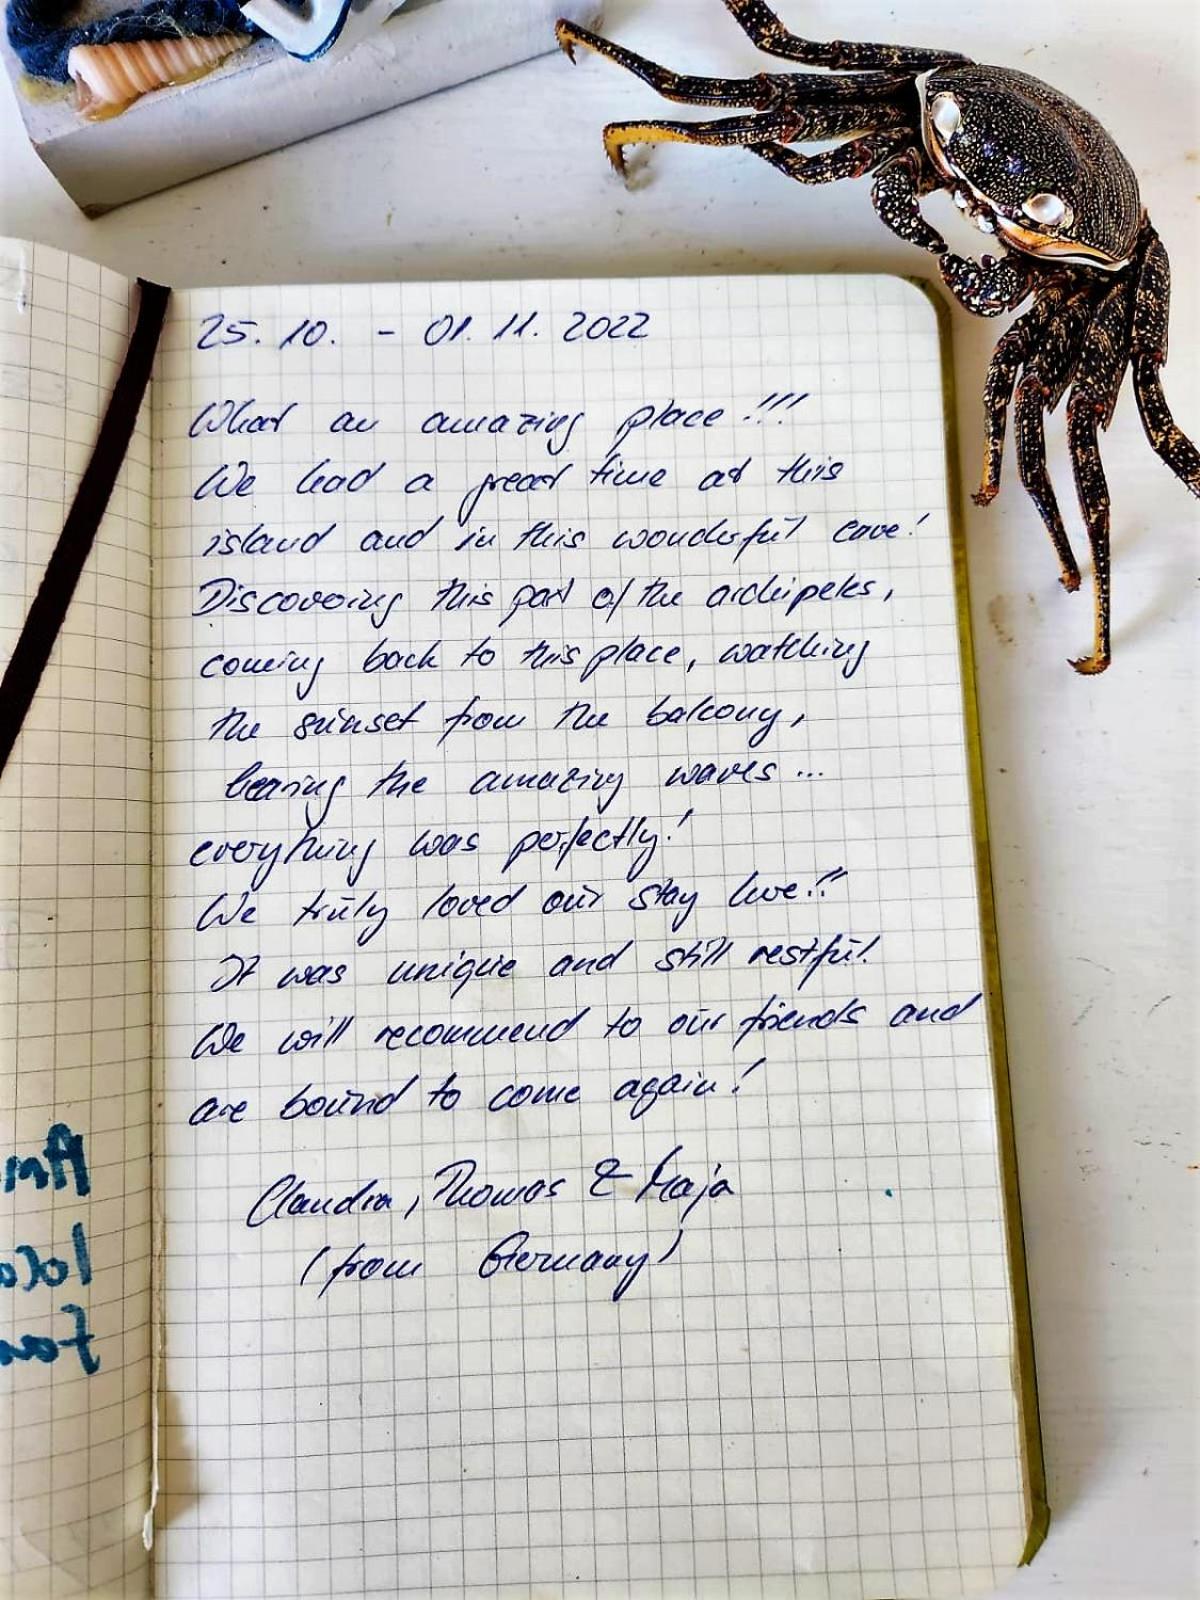 25. 10. - 01. 11. 2022
What an amazing place!!!
We had a great time at this
island and in this wonderful cave!
Discovering this part of the archipeles,
coming back to this place, watching
the sunset from the balcony,
hearing the amazing waves...
everything was perfectly!
We truly loved our stay here!!
It was unique and still restful.
We will recommend to our friends and
are bound to come again!
Claudia, Thomas & Maja
(from Germany)